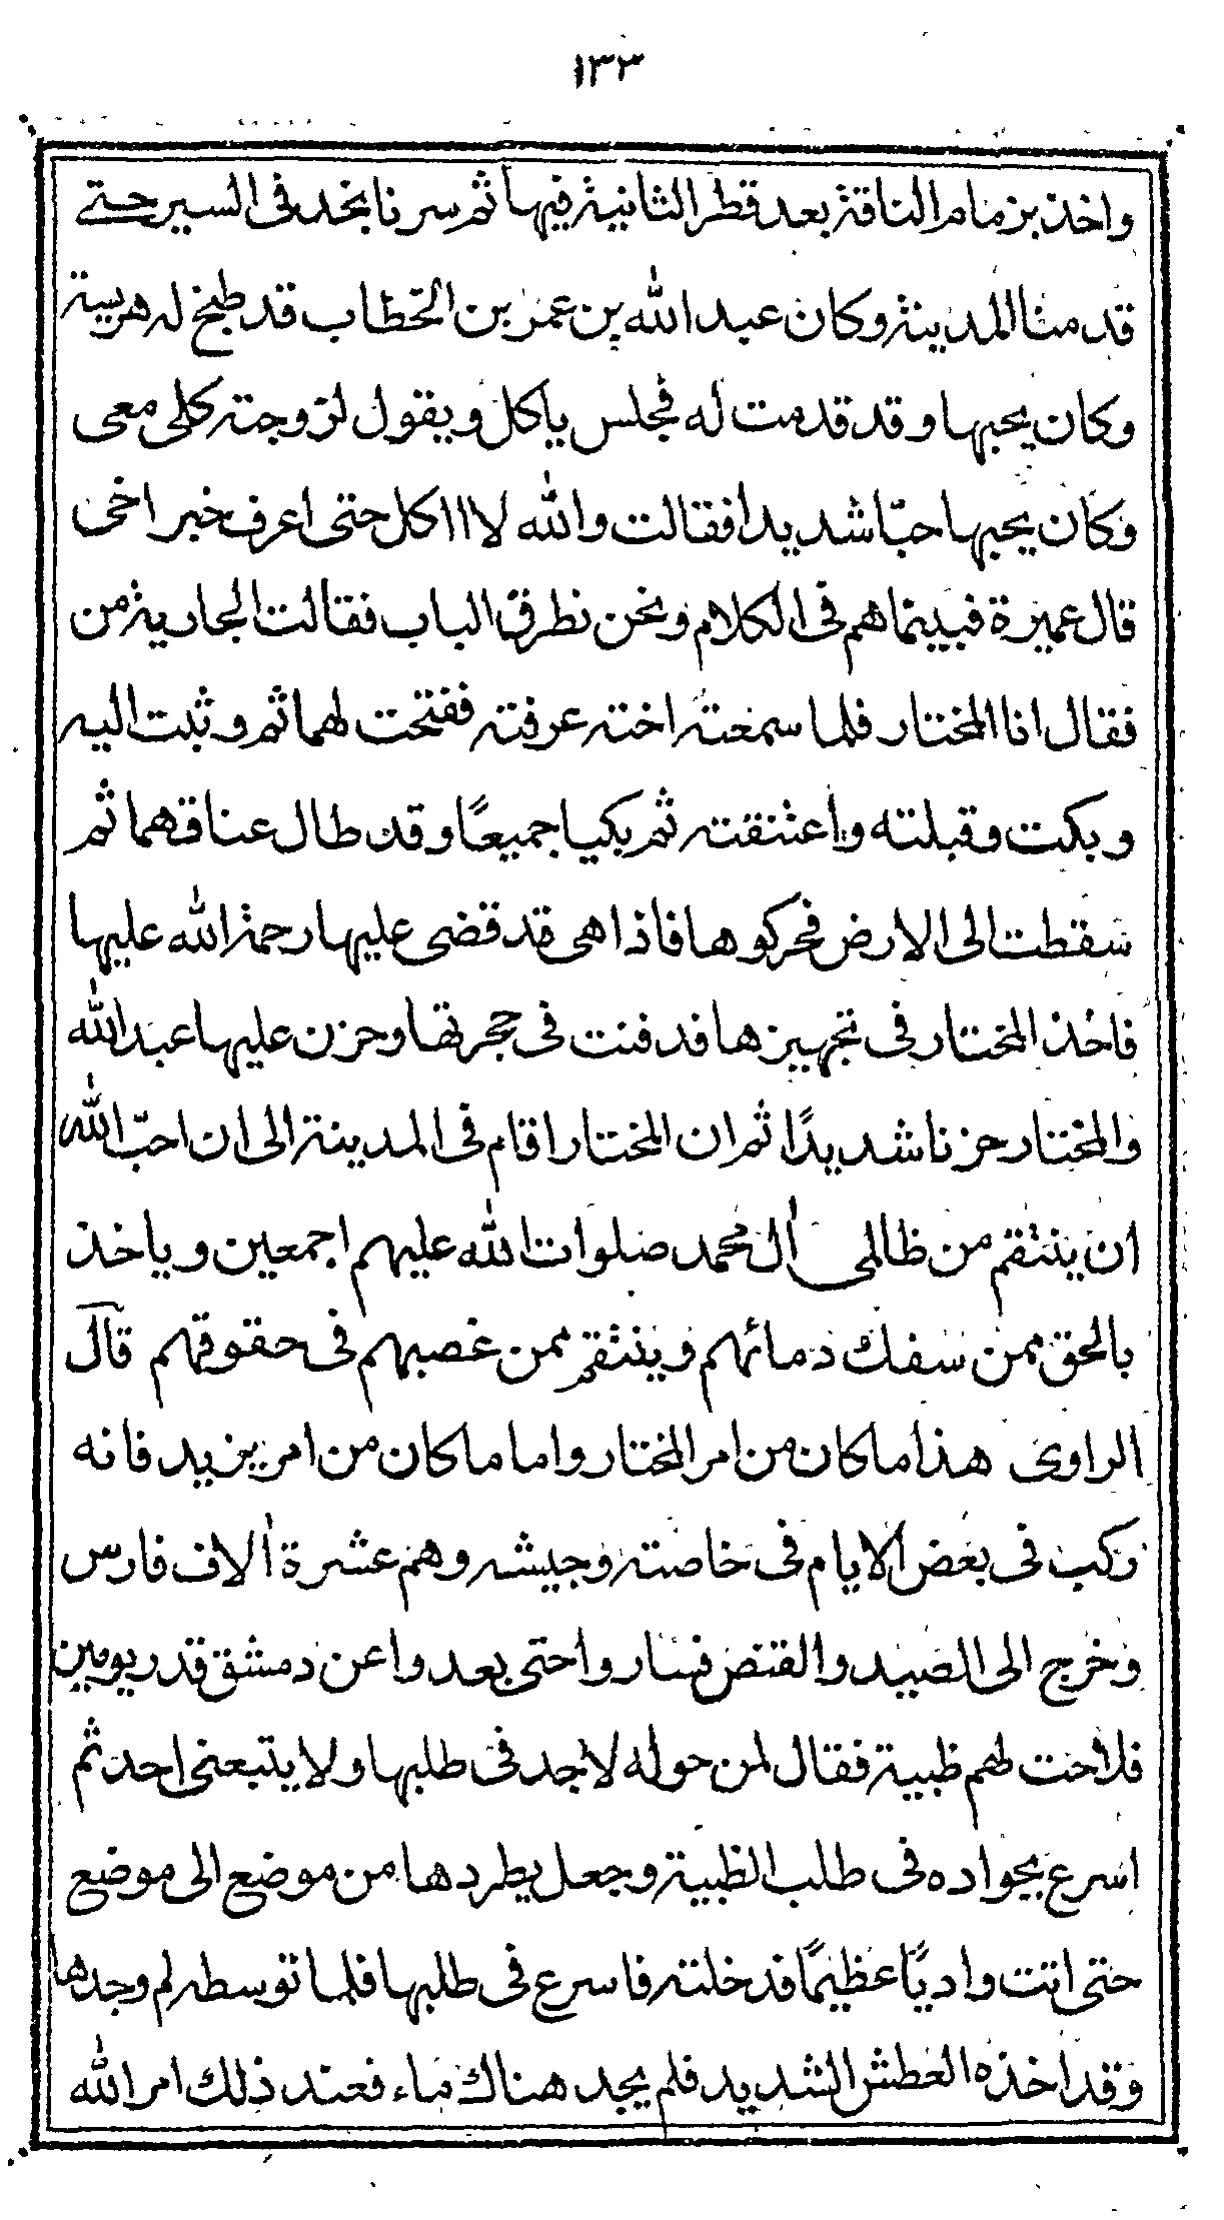 ١٣٣
واخذ بزمام الناقة بعد قطر الثانية فيها ثم سرنا بخد فى السير حتے
قدمنا المدينة وكان عبد الله بن عمر بن الخطاب قد طبخ له هريسة
وكان يحبها وقد قدمت له فجلس ياكل ويقول لزوجته كلى معى
وكان يحبها حبّا شديدا فقالت والله لا ااكل حتى اعرف خبر اخى
قال عميرة فبينما هم فى الكلام ونحن نطرق الباب فقالت الجارية من
فقال انا المختار فلما سمعته اخته عرفته ففتحت لهما ثم وثبت اليه
وبكت وقبلته واعتنقته ثم بكيا جميعًا وقد طال عناقهما ثم
سقطت الى الارض فحركوها فاذا هى قد قضى عليها رحمة الله عليها
فاخذ المختار فى تجهيزها فدفنت فى حجرتها وحزن عليها عبد الله
والمختار حزنا شديدًا ثم ان المختار اقام فى المدينة الى ان احبّ الله
ان ينتقم من ظالمى اٰل محمد صلوات الله عليهم اجمعين وياخذ
بالحق ممن سفك دمائهم وينتقم ممن غصبهم فى حقوقهم قال
الراوى هذا ما كان من امر المختار واما ما كان من امر يزيد فانه
ركب فى بعض الايام فى خاصته وجيشه وهم عشرة اٰلاف فارس
وخرج الى الصيد والقنص فساروا حتى بعدوا عن دمشق قدر يومين
فلاحت لهم ظبية فقال لمن حوله لاجد فى طلبها ولا يتبعنى احد ثم
اسرع بجواده فى طلب الظبية وجعل يطردها من موضع الى موضع
حتى اتت واديًا عظيمًا فدخلته فاسرع فى طلبها فلما توسطه لم وجدها
وقد اخذه العطش الشديد فلم يجد هناك ماء فعند ذلك امر الله